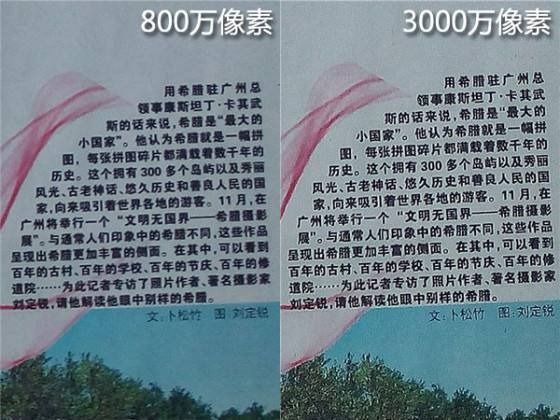 800万像素
用希腊驻广州总
领事康斯坦丁·卡其武
斯的话来说，希腊是“最大的
小国家”。他认为希腊就是一幅拼
图，每张拼图碎片都满载着数千年的
历史。这个拥有 300 多个岛屿以及秀丽
风光、古老神话、悠久历史和善良人民的国
家，向来吸引着世界各地的游客。11 月，在
广州将举行一个“文明无国界——希腊摄影
展”。与通常人们印象中的希腊不同，这些作品
呈现出希腊更加丰富的侧面。在其中，可以看到
百年的古村、百年的学校、百年的节庆、百年的修
道院……为此记者专访了照片作者、著名摄影家
刘定锐，请他解读他眼中别样的希腊。
文：卜松竹　图：刘定锐
3000万像素
用希腊驻广州总
领事康斯坦丁·卡其武
斯的话来说，希腊是“最大的
小国家”。他认为希腊就是一幅拼
图，每张拼图碎片都满载着数千年的
历史。这个拥有 300 多个岛屿以及秀丽
风光、古老神话、悠久历史和善良人民的国
家，向来吸引着世界各地的游客。11 月，在
广州将举行一个“文明无国界——希腊摄影
展”。与通常人们印象中的希腊不同，这些作品
呈现出希腊更加丰富的侧面。在其中，可以看到
百年的古村、百年的学校、百年的节庆、百年的修
道院……为此记者专访了照片作者、著名摄影家
刘定锐，请他解读他眼中别样的希腊。
文：卜松竹　图：刘定锐